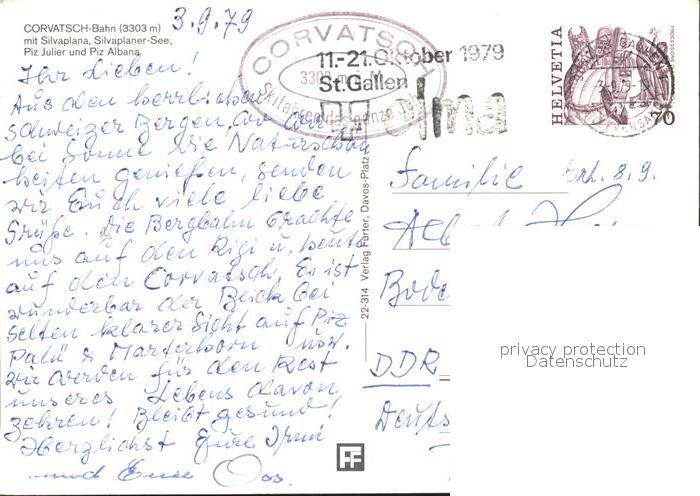 CORVATSCH-Bahn (3303 m)
mit Silvaplana, Silvaplaner-See,
Piz Julier und Piz Albana
3.9.79
Ihr Lieben!
Aus den herrlichen
Schweizer Bergen, wo wir
bei Sonne die Naturschön
heiten genießen, senden
wir Euch viele liebe
Grüße. Die Bergbahn brachte
uns auf den Rigi u. heute
auf den Corvatsch. Es ist
wunderbar der Blick bei
selten klarer Sicht auf Piz
Palü & Matterhorn usw.
Wir werden für den Rest
unseres Lebens davon
zehren! Bleibt gesund!
Herzlichst Eure Irmi
und Euer
CORVATSCH
3303 m
11.-21. Oktober 1979
St. Gallen
olma
HELVETIA
70
22-314 Verlag Furter, Davos-Platz
Familie
Erh. 8.9.
DDR
FF
privacy protection
Datenschutz